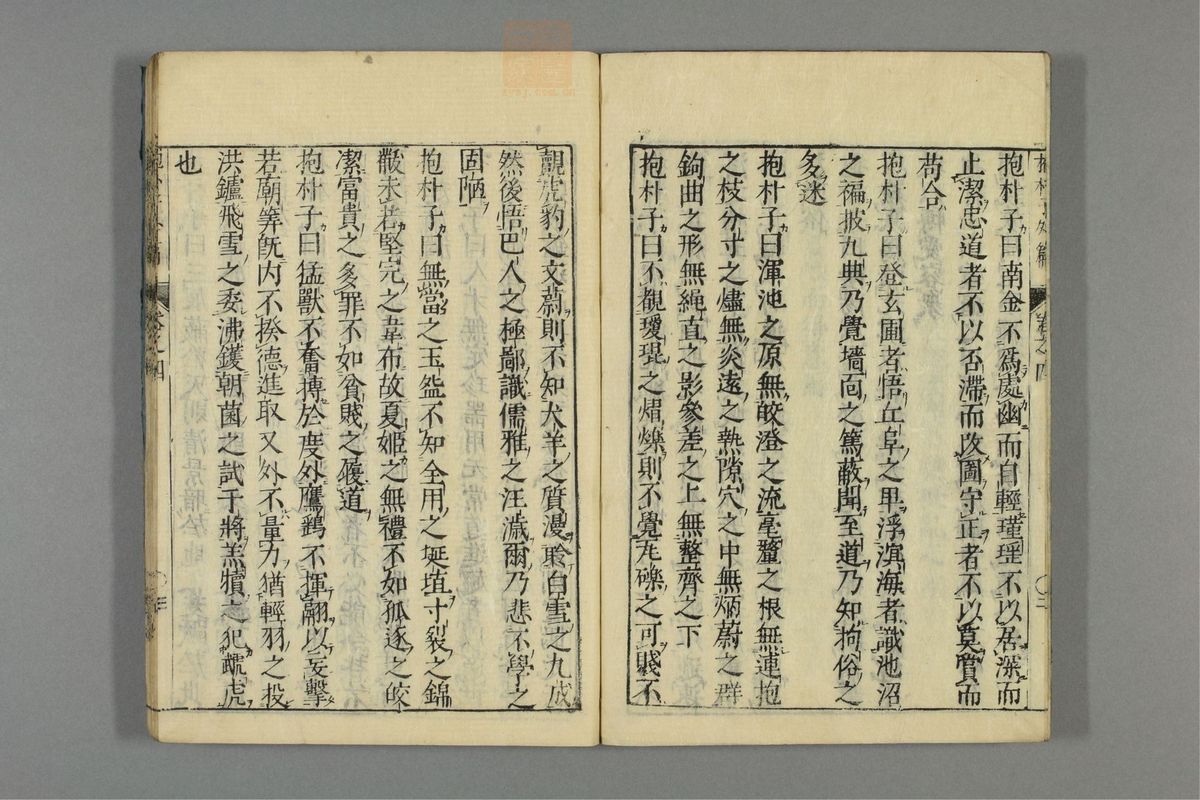 抱朴子曰南金不爲處幽而自輕瑾瑶不以居深而
止潔忠道者不以否滯而改圖守正者不以莫賞而
苟合
抱朴子曰登玄圃者悟丘阜之卑浮溟海者識池沼
之褊披九典乃覺墻面之篤蔽聞至道乃知拘俗之
多迷
抱朴子曰渾沌之原無皎澄之流毫釐之根無連抱
之枝分寸之燼無炎遠之熱隙穴之中無炳蔚之群
鉤曲之形無繩直之影參差之上無整齊之下
抱朴子曰不覩瓊琨之熠爍則不覺瓦礫之可賤不
覿虎豹之文蔚則不知犬羊之質漫聆白雪之九成
然後悟巴人之極鄙識儒雅之汪濊爾乃悲不學之
固陋
抱朴子曰無當之玉盌不知全用之埏埴寸裂之錦
黻未若堅完之韋布故夏姬之無禮不如孤逐之皎
潔富貴之多罪不如貧賤之履道
抱朴子曰猛獸不奮搏於度外鷹鷂不揮翮以妄擊
若廟筭既内不揆德進取又外不量力猶輕羽之投
洪鑪飛雪之委沸鑊朝菌之試干將羔犢之犯虣虎
也
抱朴子外篇
卷之四
二
三